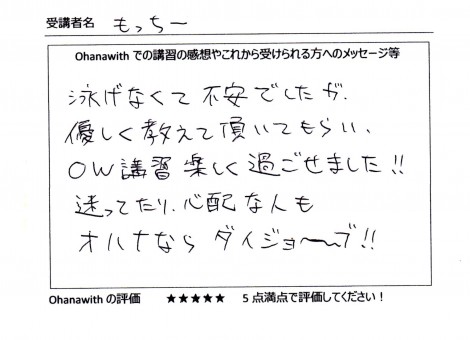 受講者名 もっちー
Ohanawith での講習の感想やこれから受けられる方へのメッセージ等
泳げなくて不安でしたが、
優しく教えて頂いてもらい、
OW講習楽しく過ごせました!!
迷ってたり、心配な人も
オハナなら ダイジョ〜ブ!!
Ohanawith の評価 ★★★★★ 5 点満点で評価してください！